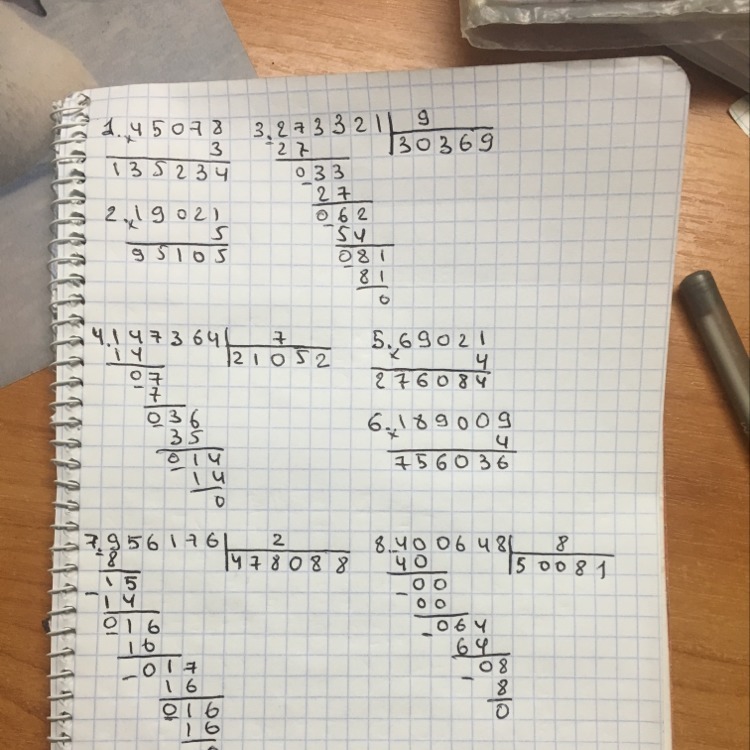 1. × 45078
3
135234
2. × 19021
5
95105
3. 273321 | 9
- 27 | 30369
033
- 27
062
- 54
081
- 81
0
4. 147364 | 7
- 14 | 21052
07
- 7
036
- 35
014
- 14
0
5. × 69021
4
276084
6. × 189009
4
756036
7. 956176 | 2
- 8 | 478088
15
- 14
016
- 16
017
- 16
016
- 16
0
8. 400648 | 8
- 40 | 50081
00
- 00
064
- 64
08
- 8
0